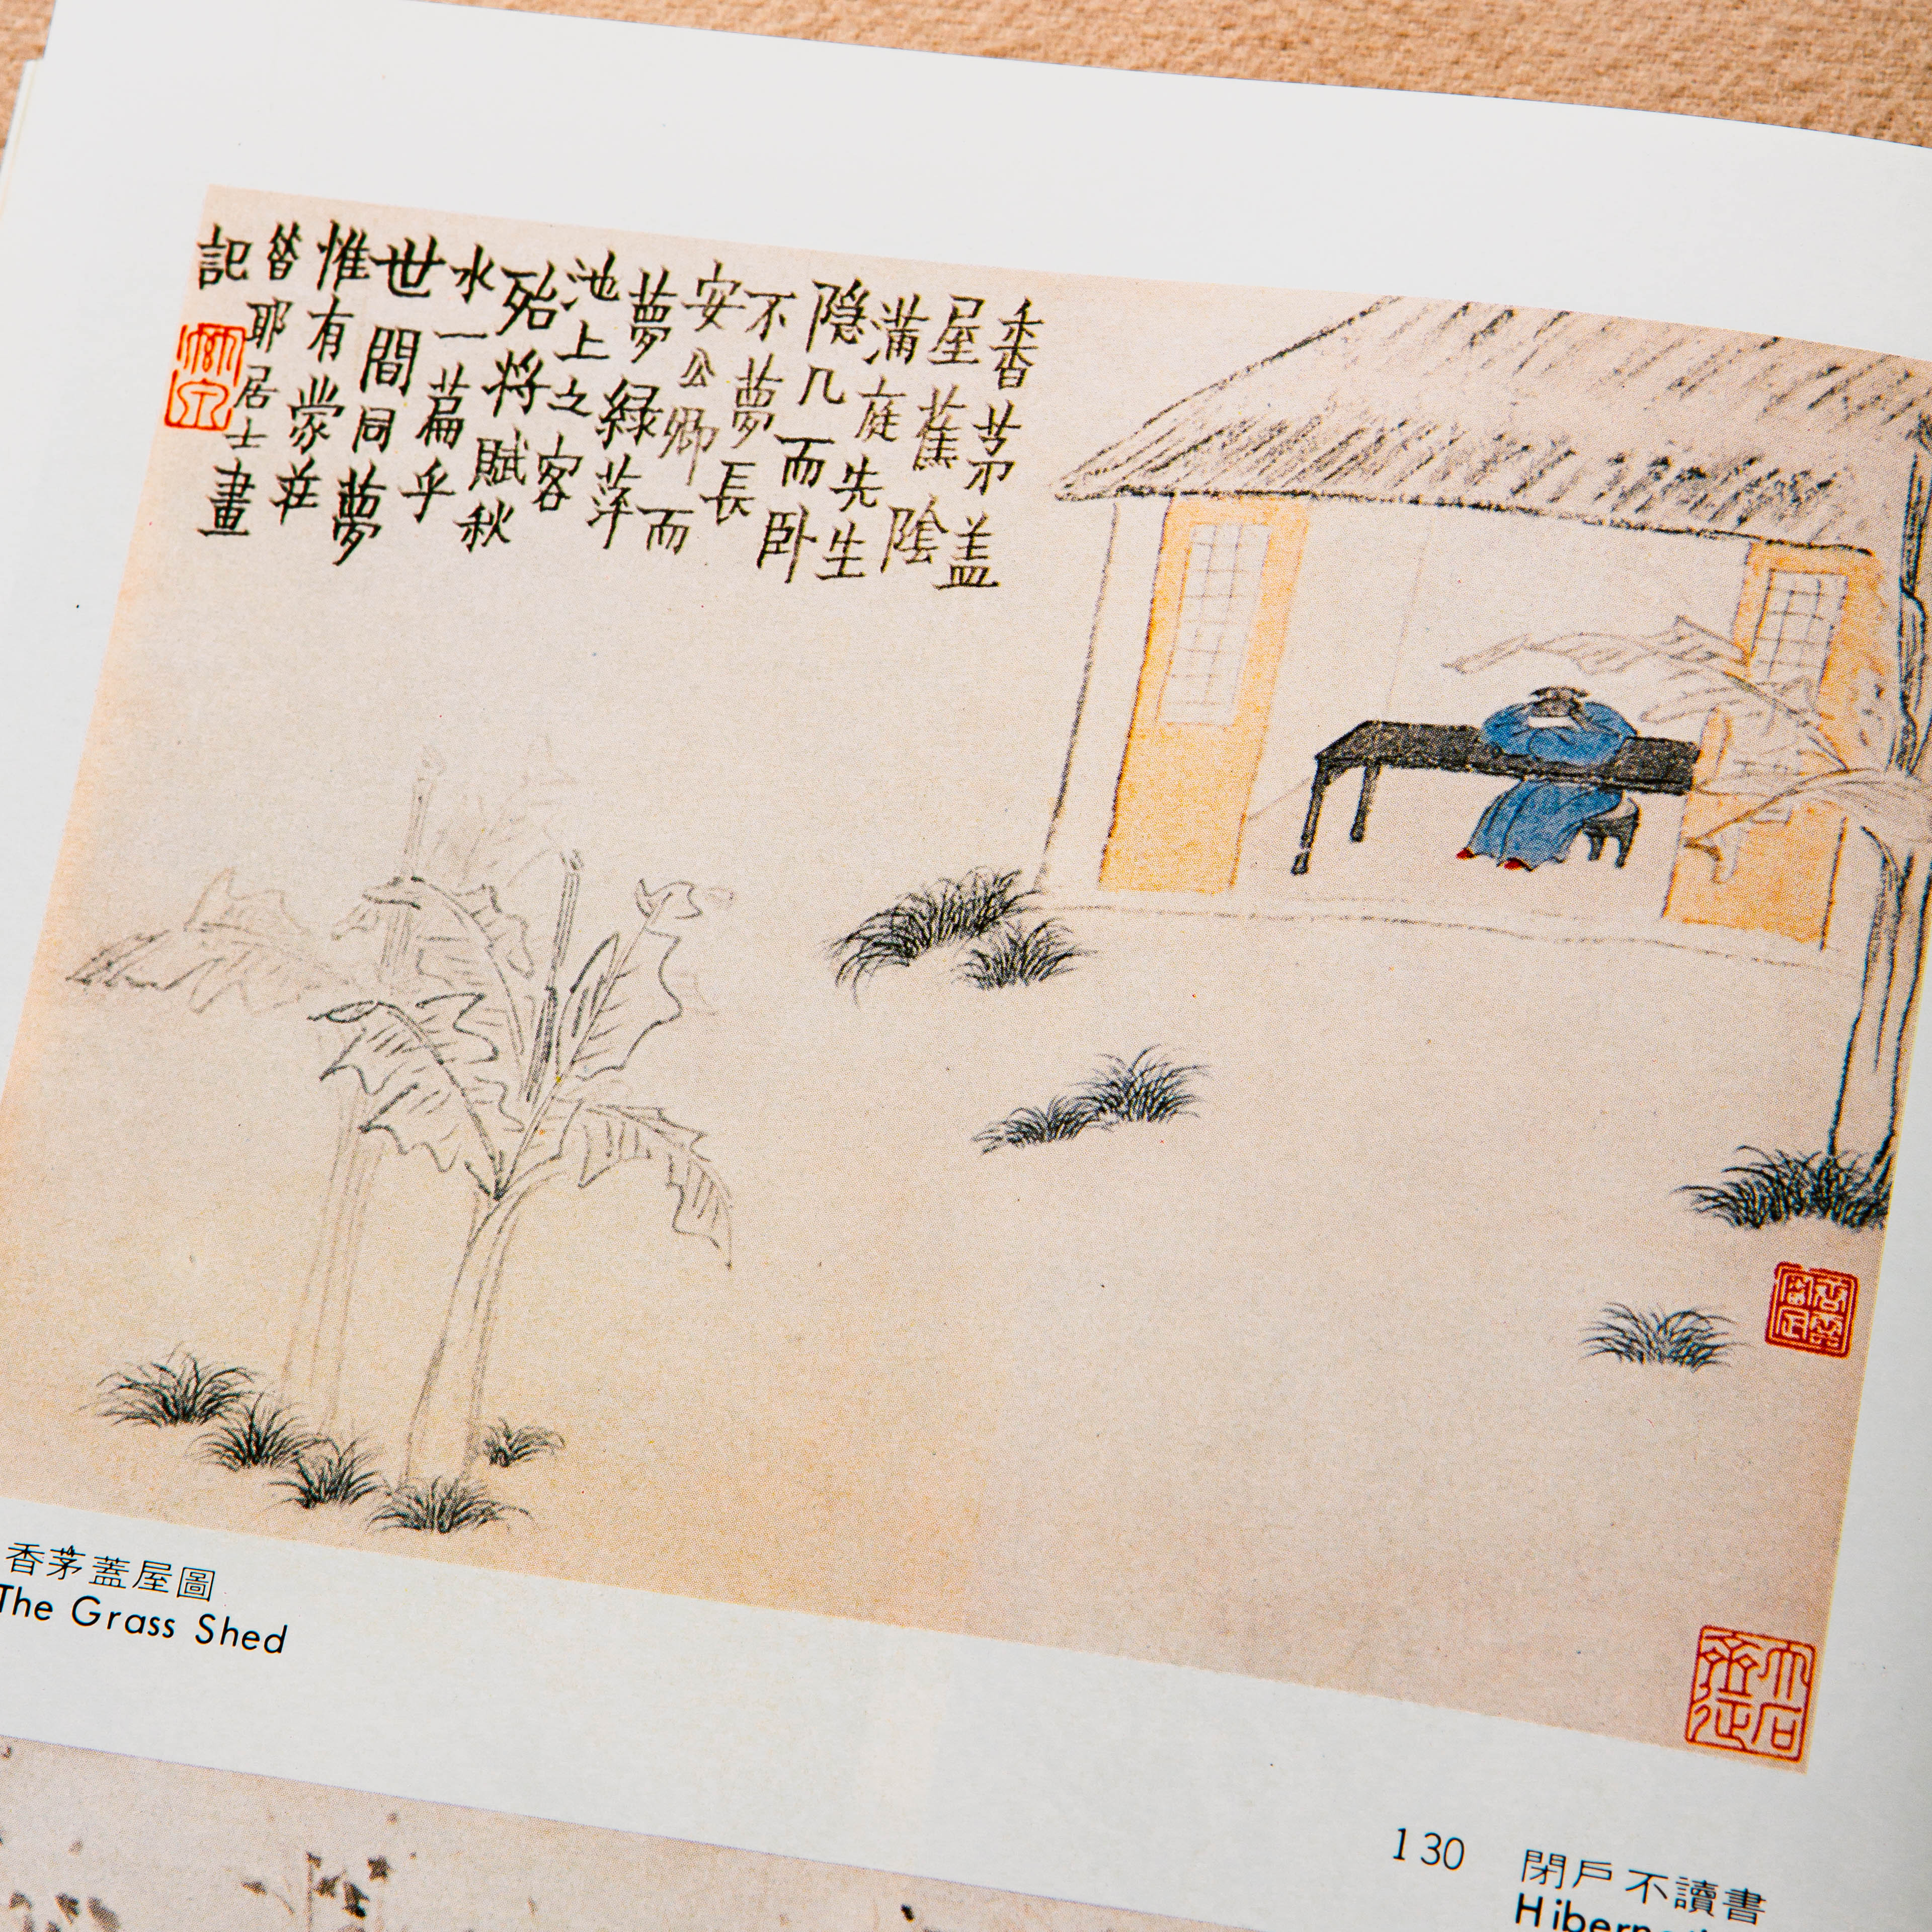 香茅盖
屋蕉陰
滿庭先生
隱几而卧
不夢長
安公卿而
夢緑萍
池上之客
殆将賦秋
水一篇乎
世間同夢
惟有蒙荘
昔耶居士畫
記
香茅蓋屋圖
The Grass Shed
130 閉戶不讀書